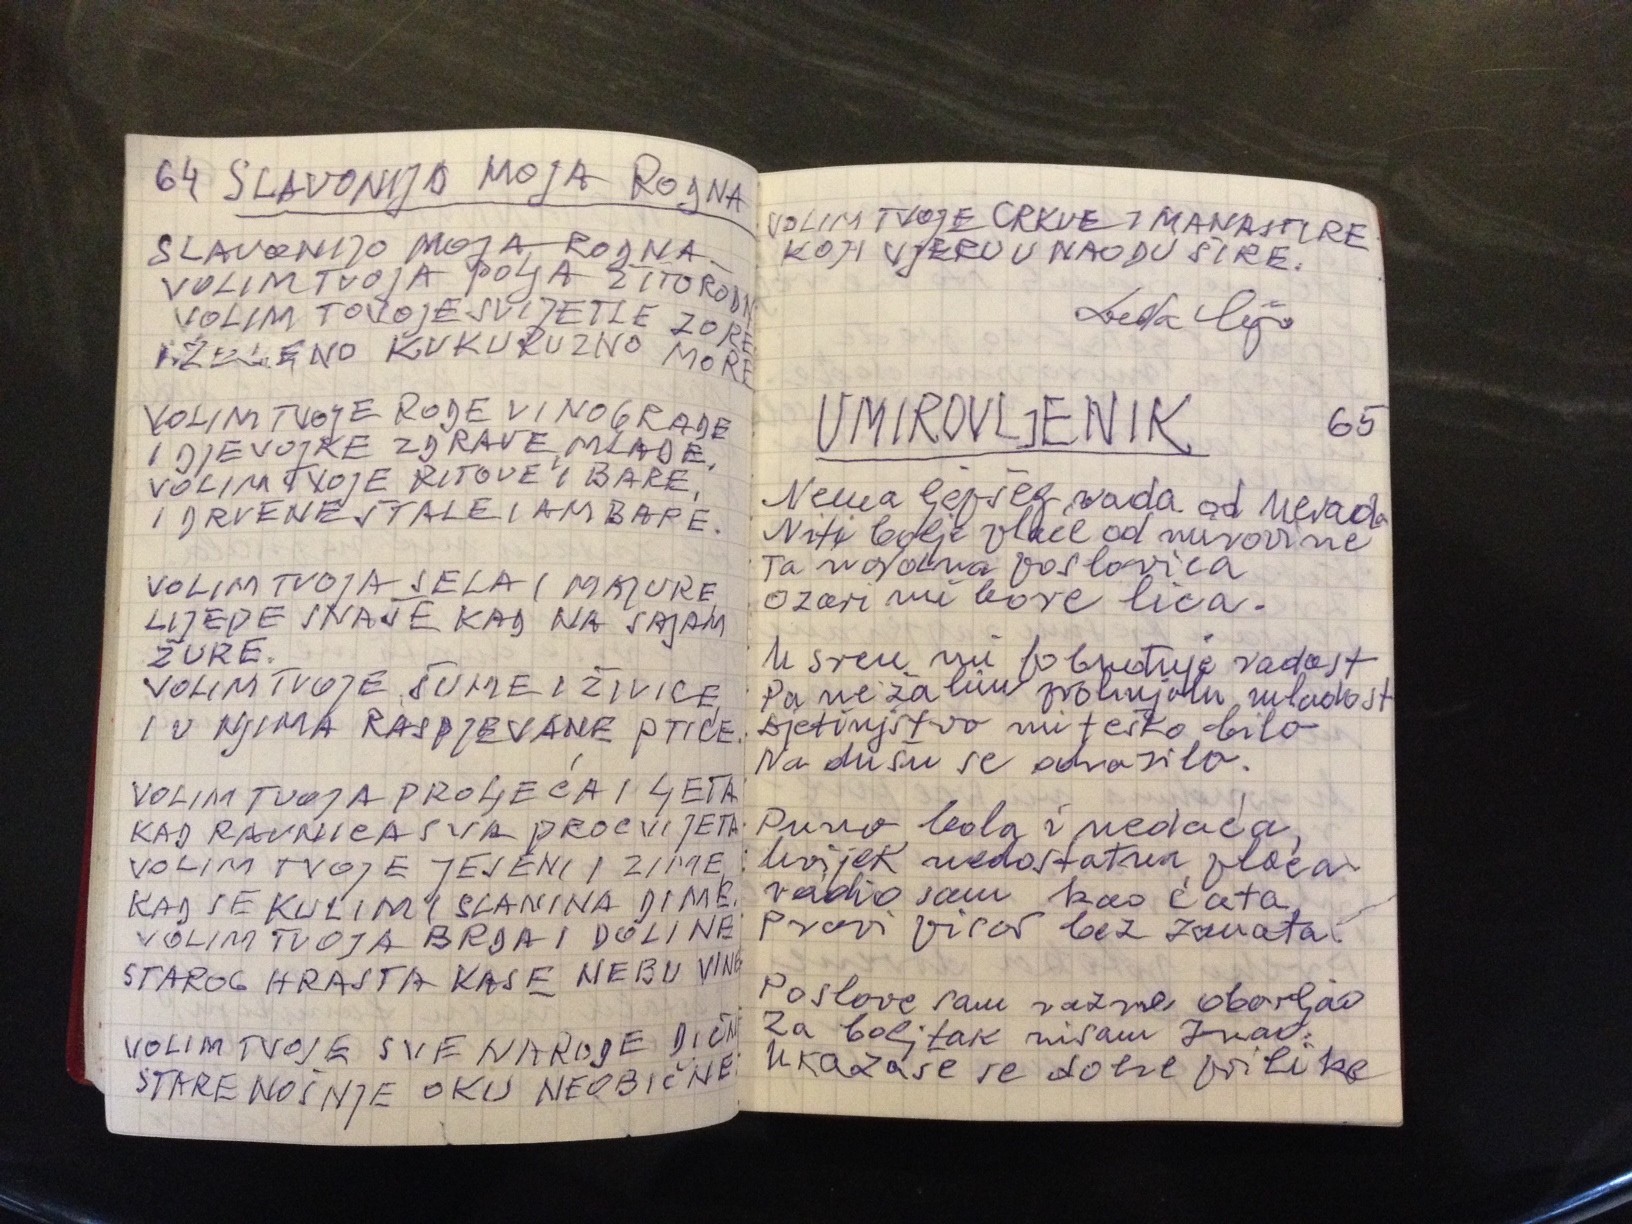 64 SLAVONIJO MOJA RODNA
SLAVONIJO MOJA RODNA
VOLIM TVOJA POLJA ŽITORODN
VOLIM TOVOJE SVIJETLE ZORE
KUKURUZNO MORE
VOLIM TVOJE RODE VINOGRADE
I DJEVOJKE ZDRAVE, MLADE,
VOLIM TVOJE RITOVE I BARE,
I DRVENE ŠTALE I AMBARE.
VOLIM TVOJA SELA I MAJURE,
LIJEPE SNAŠE KAD NA SAJAM
ŽURE.
VOLIM TVOJE ŠUME I ŽIVICE,
I U NJIMA RASPJEVANE PTICE.
VOLIM TVOJA PROLJEĆA I LJETA
KAD RAVNICA SVA PROCVIJETA
VOLIM TVOJE JESENI I ZIME,
KAD SE KULIM I SLANINA DIME.
VOLIM TVOJA BRDA I DOLINE
STAROG HRASTA KASE NEBU VINE
VOLIM TVOJE SVE NARODE DIČNE
STARE NOŠNJE OKU NEOBIČNE
VOLIM TVOJE CRKVE I MANASTIRE
KOJI VJERU U NAODU ŠIRE.
UMIROVLJENIK 65
Nema ljepšeg rada od nerada
Niti bolje plaće od mirovine
Ta narodna poslovica
Ozari mi bore lica.
U srcu mi radost
Pa ne žalim mladost
Djetinjstvo mi teško bilo
Na dušu se odrazilo.
Puno bola i nedaća,
Uvijek nedostatna plaća
radio sam kao ćata,
Pravi pisar bez zanata.
Poslove sam razne obavljao
Za bolj tak nisam znao.
Ukazaše se dobre prilike